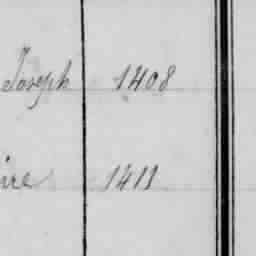 Joseph 1408
ire 1411